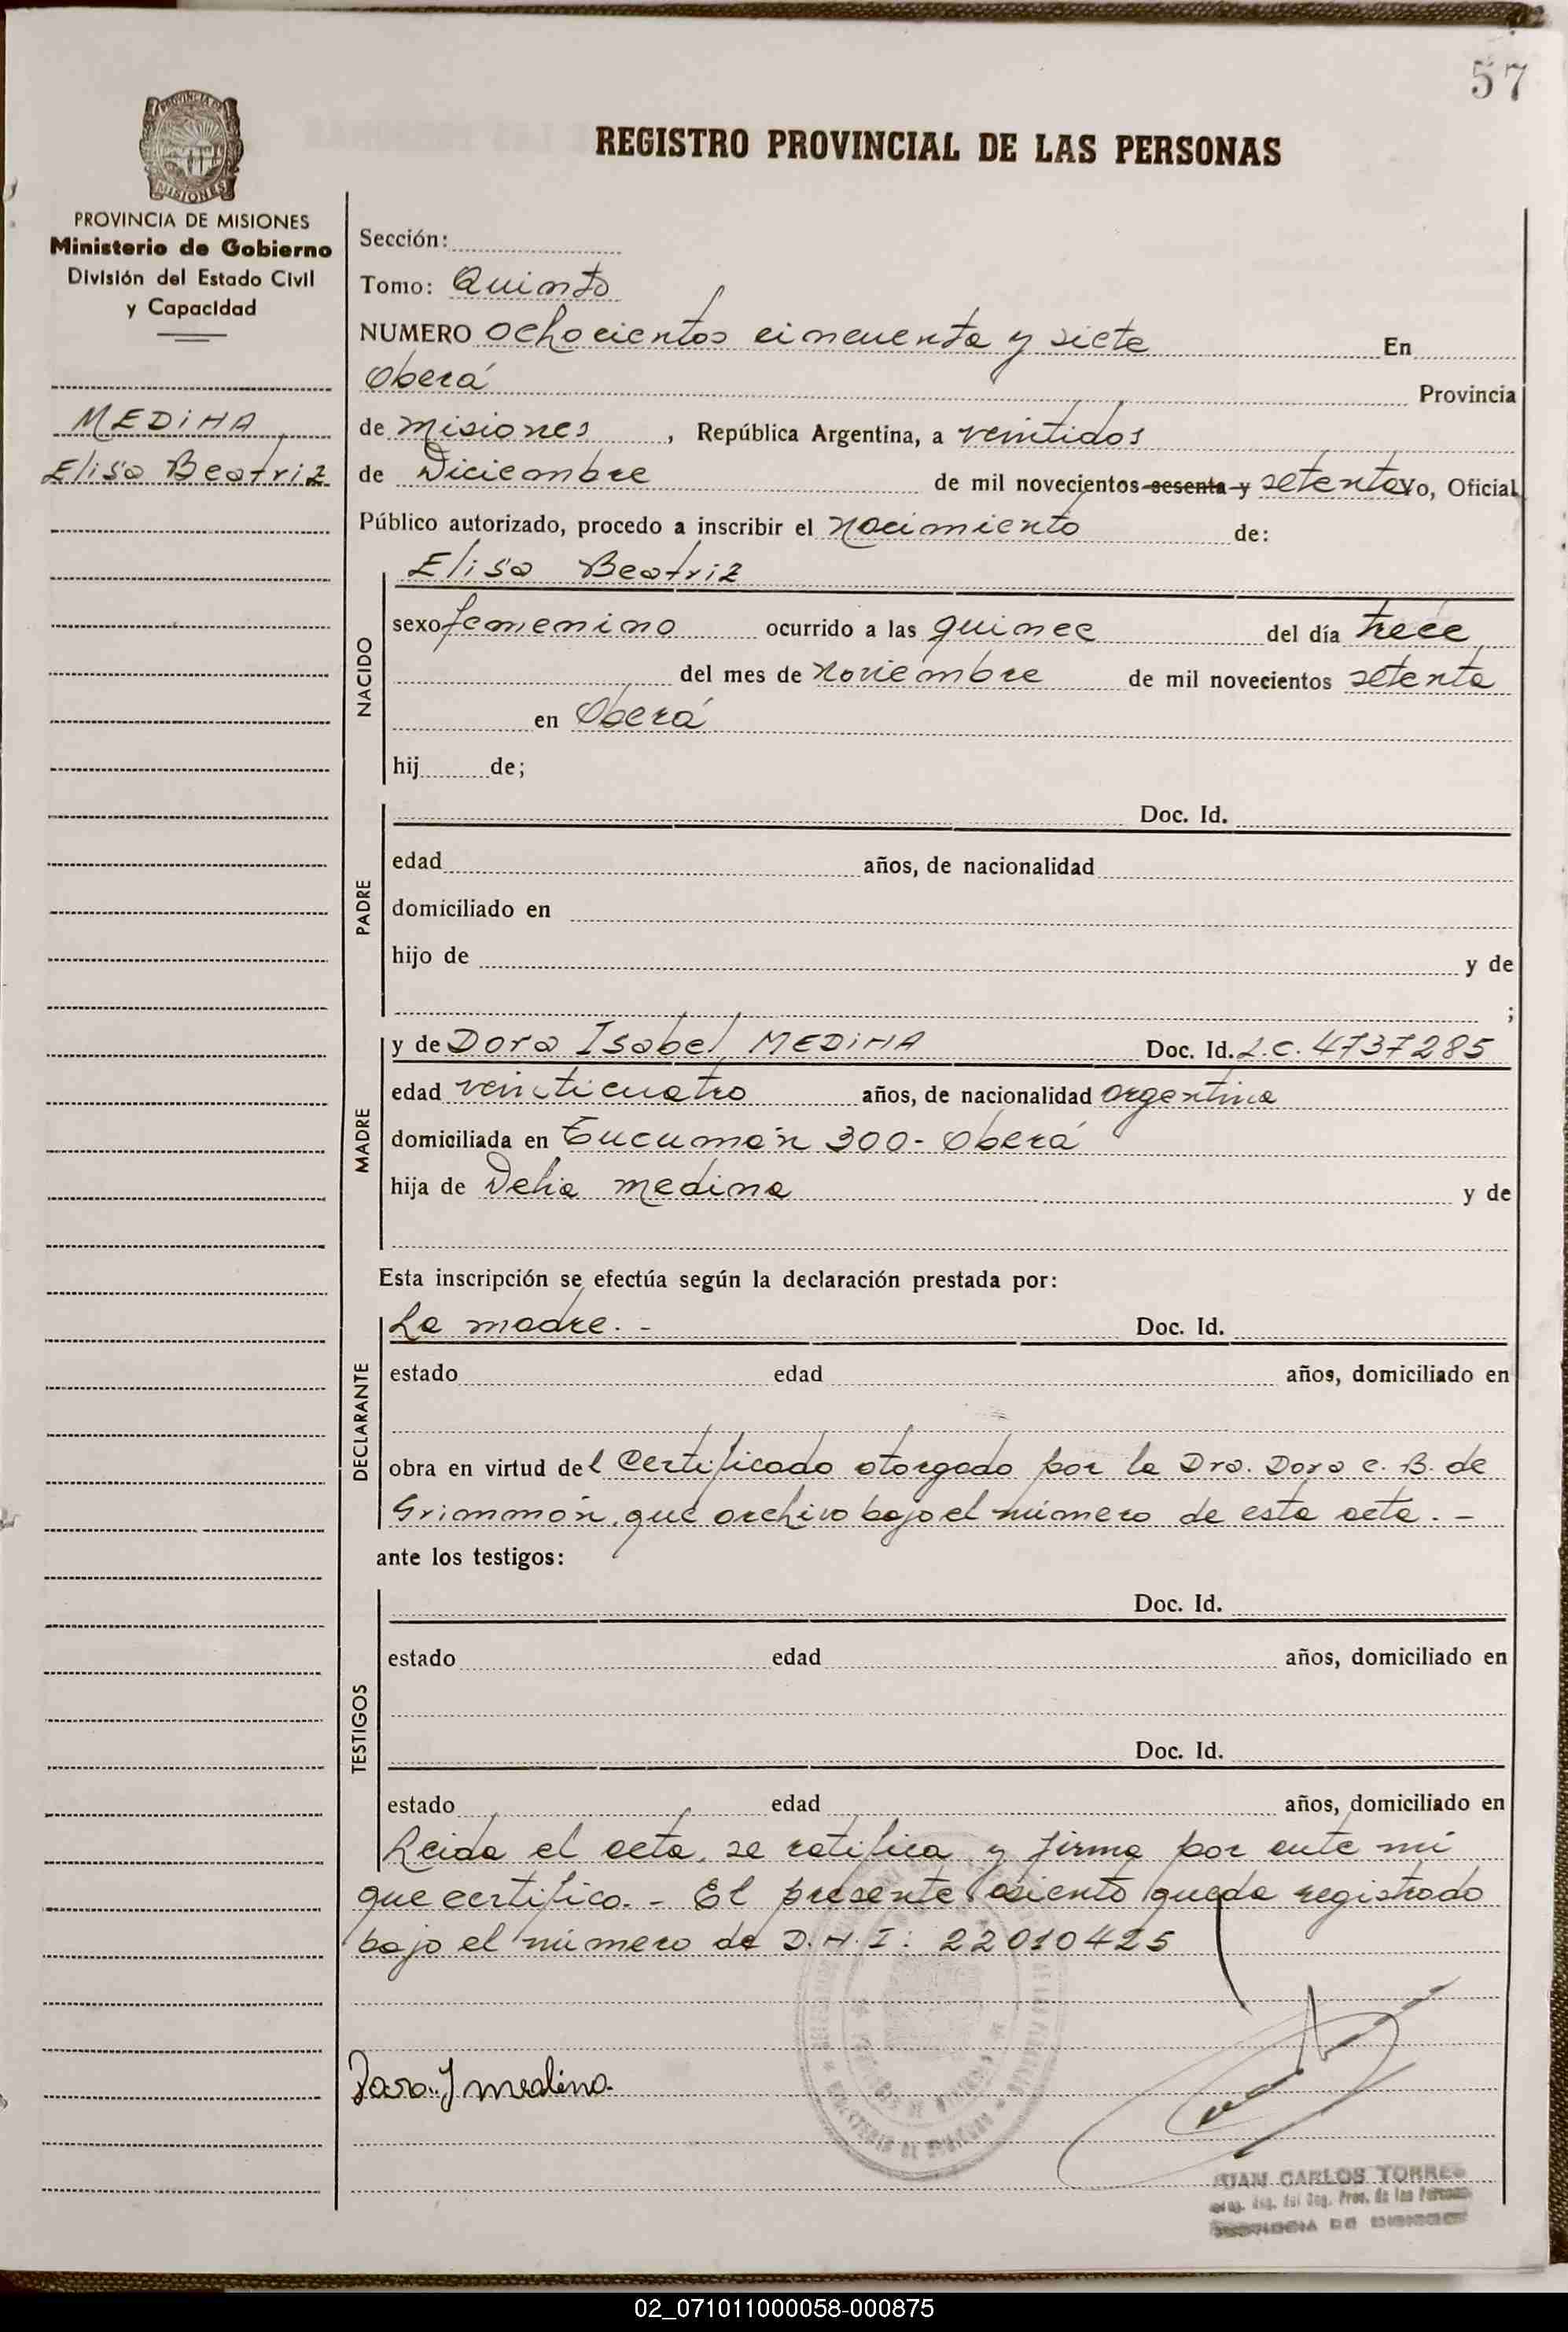 57
REGISTRO PROVINCIAL DE LAS PERSONAS
PROVINCIA DE MISIONES
Ministerio de Gobierno
División del Estado Civil
y Capacidad
MEDINA
Elisa Beatriz
Sección:
Tomo: Quinto
NUMERO ochocientos cincuenta y siete En
Oberá Provincia
de Misiones, República Argentina, a veintidos
de Diciembre de mil novecientos sesenta y setenta yo, Oficial
Público autorizado, procedo a inscribir el nacimiento de:
Elisa Beatriz
NACIDO
sexo femenino ocurrido a las quince del día trece
del mes de noviembre de mil novecientos setenta
en Oberá
hij de;
PADRE
Doc. Id.
edad años, de nacionalidad
domiciliado en
hijo de y de
;
MADRE
y de Dora Isabel MEDINA Doc. Id. L.C. 4737285
edad veinticuatro años, de nacionalidad argentina
domiciliada en Tucumán 300- Oberá
hija de Delia medina y de
Esta inscripción se efectúa según la declaración prestada por:
DECLARANTE
La madre. - Doc. Id.
estado edad años, domiciliado en
obra en virtud del Certificado otorgado por la Dra. Dora C. B. de
Grimmón, que archivo bajo el número de esta acta. -
ante los testigos:
TESTIGOS
Doc. Id.
estado edad años, domiciliado en
Doc. Id.
estado edad años, domiciliado en
Leida el acta, se ratifica y firma por ante mí
que certifico. - El presente asiento queda registrado
bajo el número de D.N.I: 22010425
Dora I medina
JUAN CARLOS TORRES
Prov. de las Personas
02_071011000058-000875